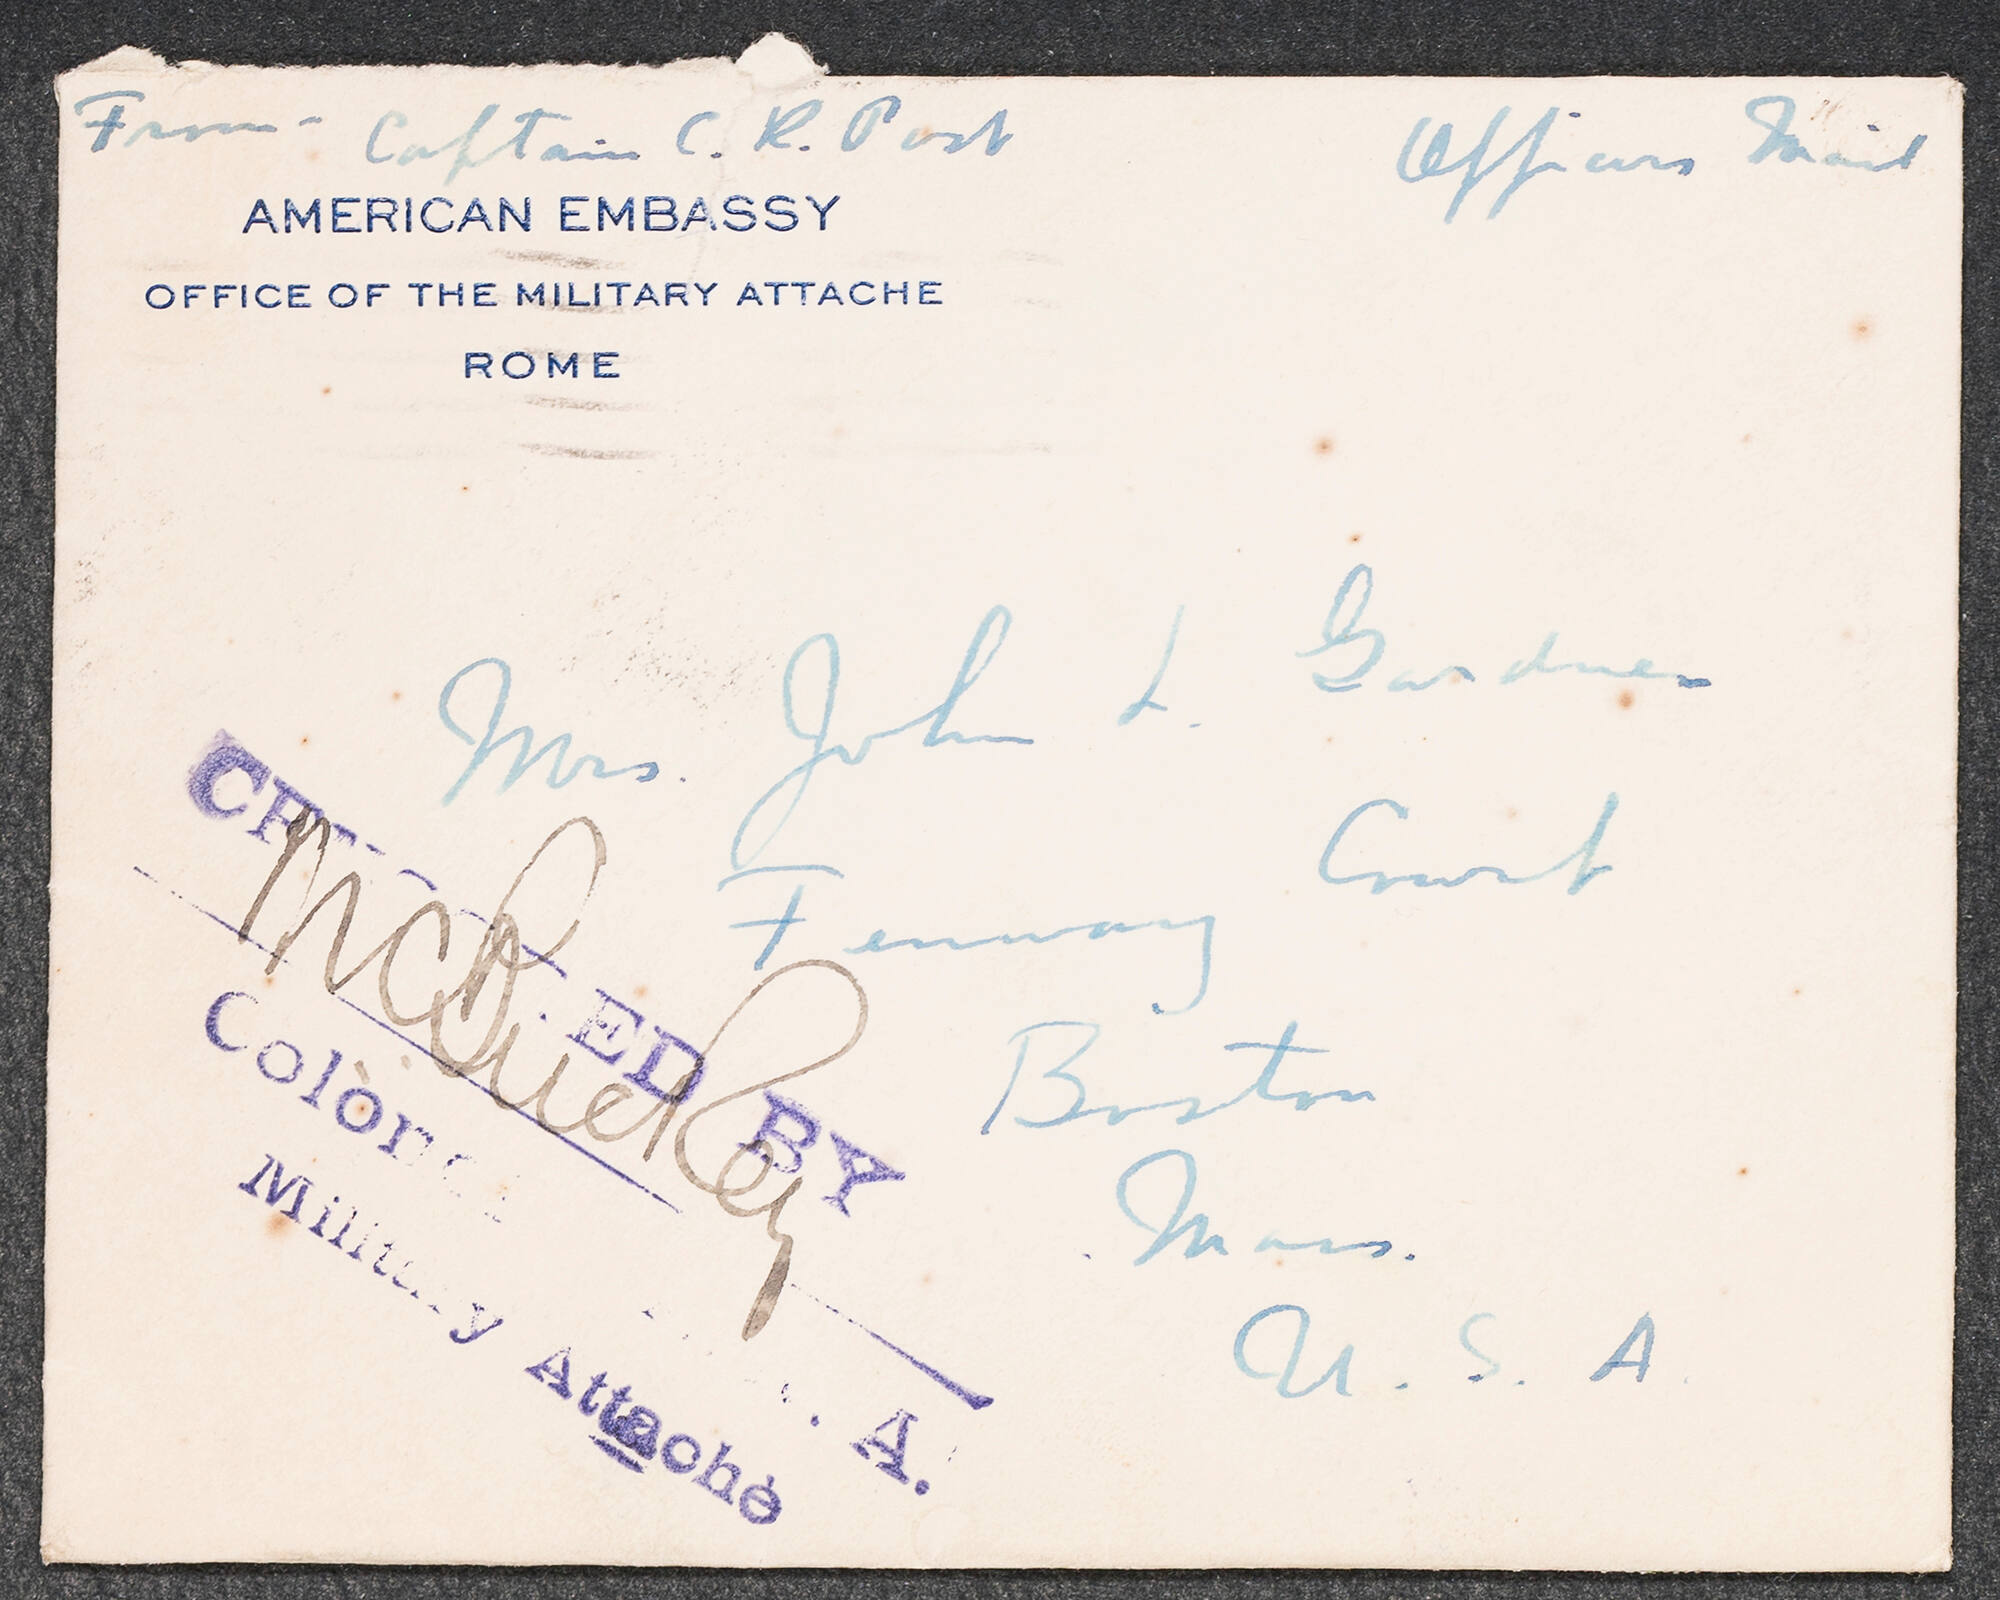 From - Captain C. R. Post
Officers Mail
AMERICAN EMBASSY
OFFICE OF THE MILITARY ATTACHE
ROME
Mrs. John L. Gardner
Fenway Court
Boston
Mass.
U. S. A.
ED BY
Colonel A.
Military Attaché